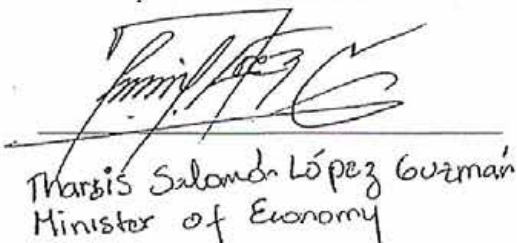 Tharsis Salomón López Guzmán
Minister of Economy